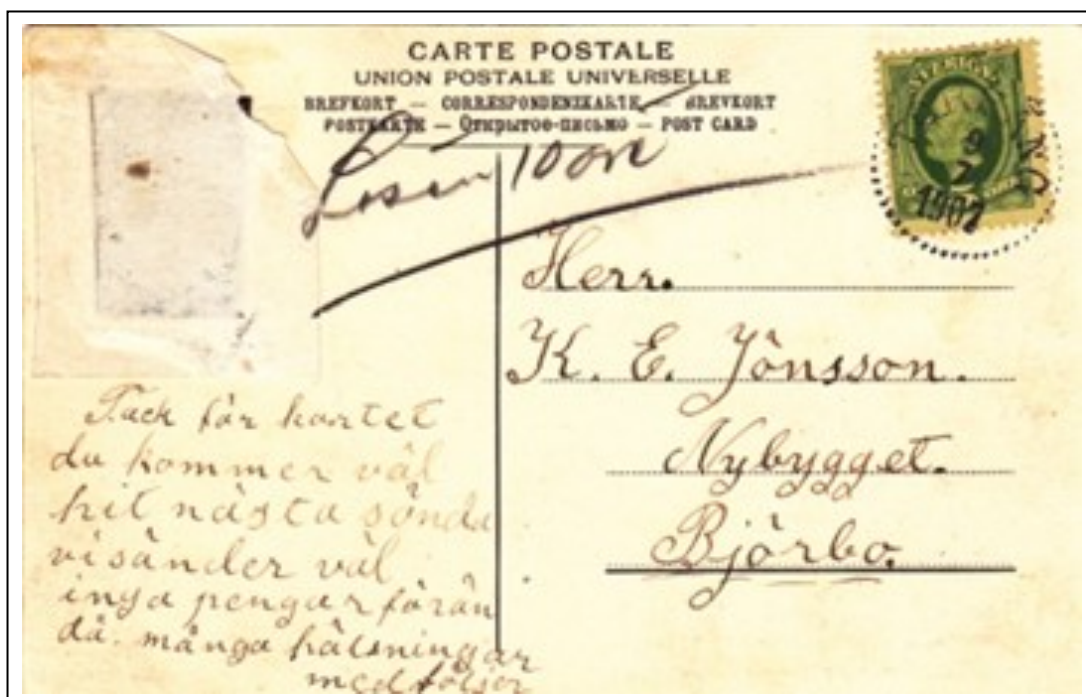 CARTE POSTALE
UNION POSTALE UNIVERSELLE
BREFKORT — CORRESPONDENZKARTE — BREVKORT
POSTKARTE — Открытое-письмо — POST CARD
Lösen 10 öre
SVERIGE
9
7
1907
Herr.
K. E. Jönsson.
Nybygget.
Björbo.
Tack för kortet
du kommer väl
hit nästa sönda
vi sänder väl
inga pengar förän
då. många hälsningar
medföljer